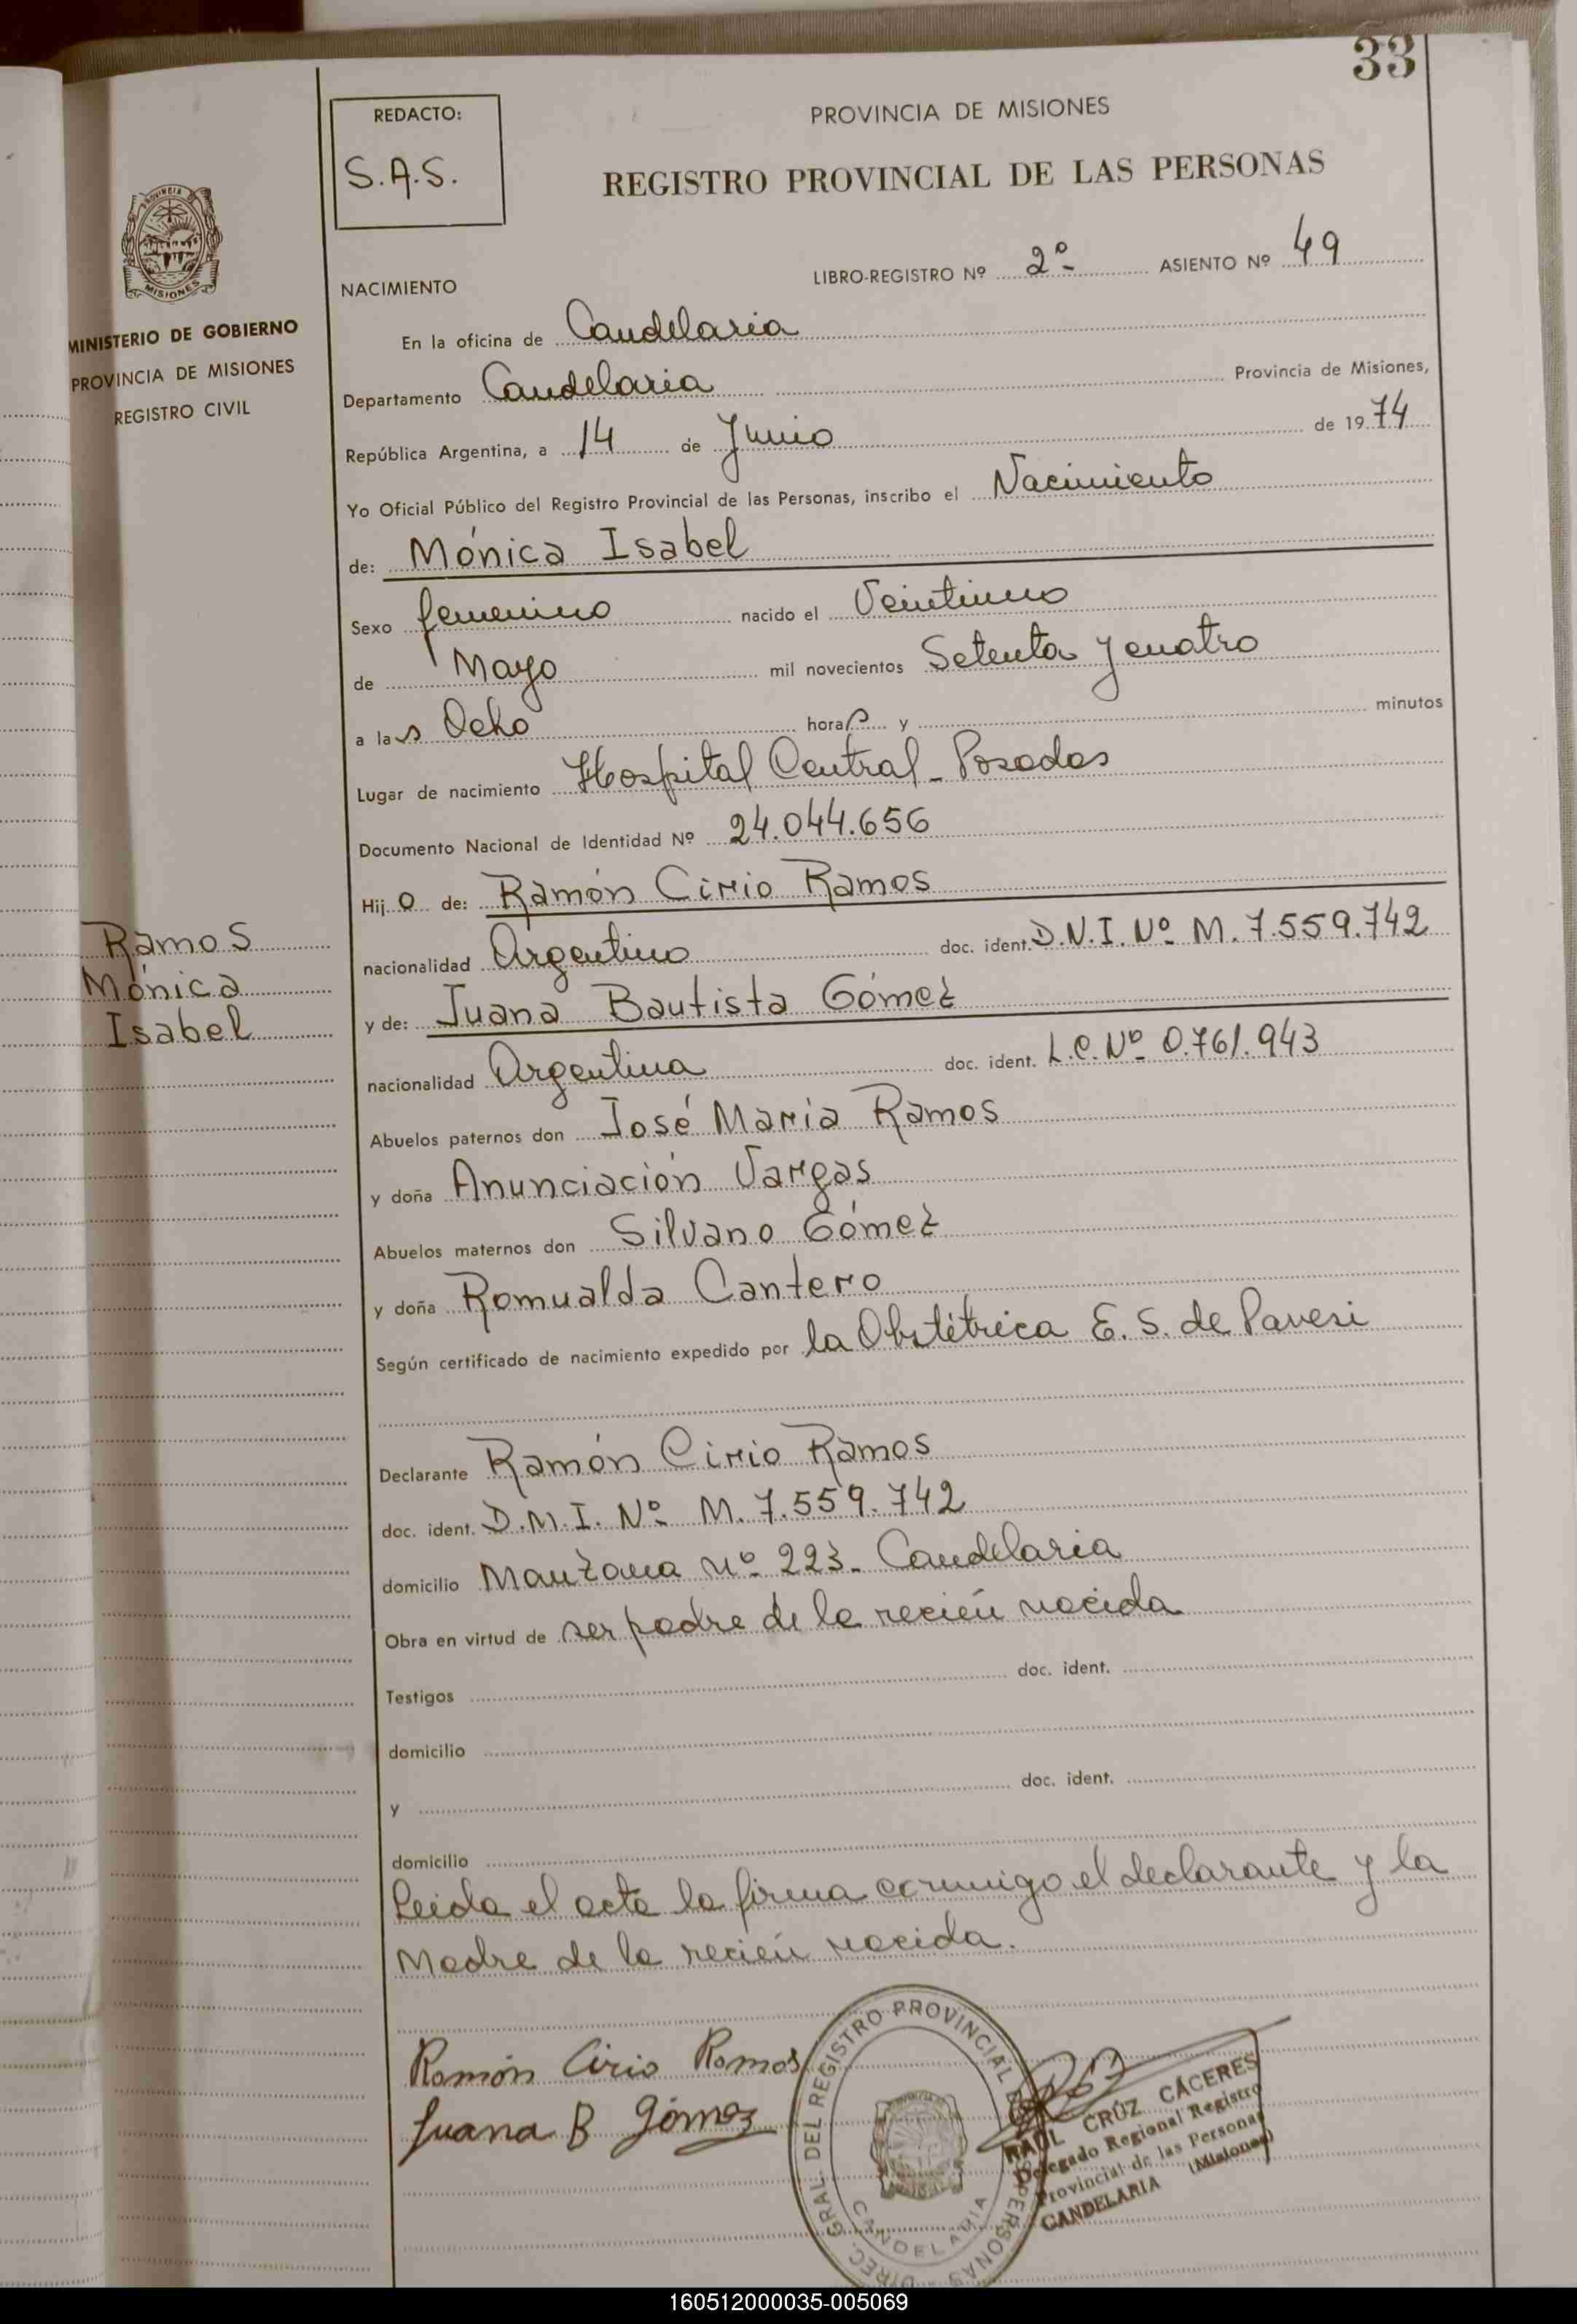 33
REDACTO:
S.A.S.
PROVINCIA DE MISIONES
REGISTRO PROVINCIAL DE LAS PERSONAS
PROVINCIA DE
MISIONES
MINISTERIO DE GOBIERNO
PROVINCIA DE MISIONES
REGISTRO CIVIL
Ramos
Mónica
Isabel
NACIMIENTO LIBRO-REGISTRO Nº 2º ASIENTO Nº 49
En la oficina de Candelaria
Departamento Candelaria Provincia de Misiones,
República Argentina, a 14 de Junio de 1974
Yo Oficial Público del Registro Provincial de las Personas, inscribo el Nacimiento
de: Mónica Isabel
Sexo femenino nacido el Veintiuno
de Mayo mil novecientos Setenta y cuatro
a las Ocho horas y minutos
Lugar de nacimiento Hospital Central - Posadas
Documento Nacional de Identidad Nº 24.044.656
Hijo de: Ramón Cirio Ramos
nacionalidad Argentino doc. ident. D.N.I. Nº M. 7.559.742
y de: Juana Bautista Gómez
nacionalidad Argentina doc. ident. L.C. Nº 0.761.943
Abuelos paternos don José Maria Ramos
y doña Anunciación Vargas
Abuelos maternos don Silvano Gómez
y doña Romualda Cantero
Según certificado de nacimiento expedido por la Obstétrica E. S. de Pavesi
Declarante Ramón Cirio Ramos
doc. ident. D.M.I. Nº M. 7.559.742
domicilio Manzana nº 223 - Candelaria
Obra en virtud de ser padre de la recién nacida
Testigos doc. ident.
domicilio
y doc. ident.
domicilio
Leida el acta la firma conmigo el declarante y la
Madre de la recién nacida.
Ramón Cirio Ramos
Juana B Gómez
DIREC. GRAL. DEL REGISTRO PROVINCIAL DE LAS PERSONAS
CANDELARIA
RAUL CRUZ CÁCERES
Delegado Regional Registro
Provincial de las Personas
CANDELARIA (Misiones)
160512000035-005069